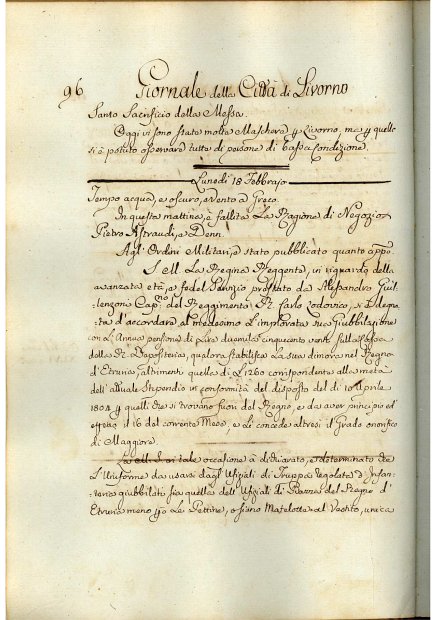 96 Giornale della Città di Livorno
Santo Sacrificio della Messa.
Oggi vi sono state molte Maschere p Livorno, ma p quello
si è potuto osservare tutte di persone di bassa Condizione.
Lunedì 18 Febbrajo
Tempo acqua, e oscuro, e vento a Greco.
In questa mattina, è fallita La Ragione di Negozio
Pietro Astraudi, e Deno.
Agl' Ordini Militari, è stato pubblicato quanto app.
S. M. La Regina Reggente, in riguardo della
avanzata età, e fedel servizio prestato da Alessandro
Cap.no del Reggimento R. Carlo Lodovico, si è degna-
ta d'accordare al medesimo L'implorata sua Giubbilazione
con L'Annua pensione di Lire duemila cinquecento venti sull'
della R. Depositeria, qualora stabilisca La sua dimora nel Regno
d'Etruria, altrimenti quella di L 1260 corrispondente alla metà
dell'attuale Stipendio in conformità del disposto del dì 10 Aprile
1804 p quelli che si trovano fuori del Regno, e da aver principio ed
effetto il 16 del corrente Mese, e Le concede altresì il Grado onorifico
di Maggiore.
La M. S. in tale occasione à dichiarato, e determinato che
L'Uniforme da usarsi dagl'Ufiziali di Truppa regolata d'Infan-
teria giubbilati sia quella dell'Ufiziali di Piazza del Regno d'
Etruria meno p Le Pettine, o siano Matelotte al Vestito, unica